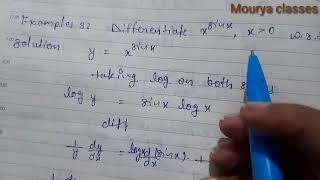 Mourya classes
Example 32 Differentiate x^sinx, x>0 w.r.t
Solution y = x^sinx
taking log on both
log y = sinx log x
diff
1/y dy/dx = logx d(sinx).
dx